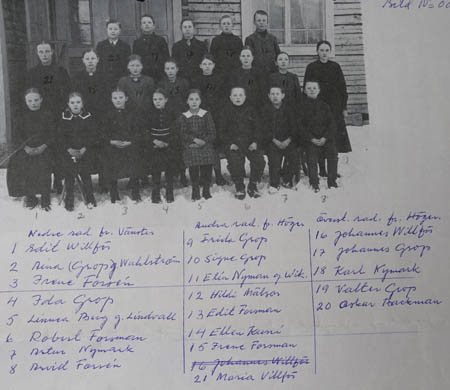 Bild Nr
1 2 3 4 5 6 7 8
Nedre rad. fr. Vänster
1 Edit Willför
2 Aina (Grop) g Wahlström
3 Irene Forsén
4 Ida Grop
5 Linnea Berg g. Lindvall
6 Robert Forsman
7 Artur Nymark
8 Arvid Forsén
Andra rad. fr. Höger
9 Frida Grop
10 Signe Grop
11 Elin Nyman g Wik.
12 Hildi
13 Edit Forsman
14 Ellen
15 Irene Forsman
16 Johannes Willför
21 Maria Villför
Överst. rad. fr. Höger
16 Johannes Willför
17 Johannes Grop
18 Karl Nymark
19 Valter Grop
20 Oskar Backman